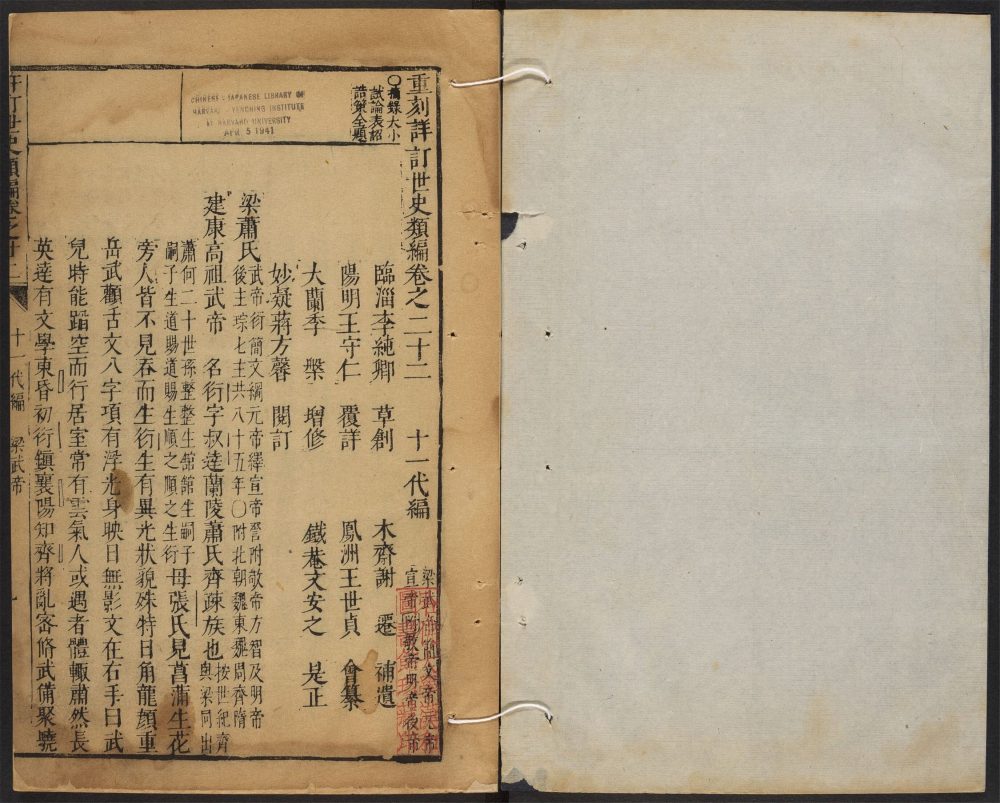 重刻詳訂世史類編卷之二十二 十一代編
梁武帝簡文帝元帝
宣帝附敬帝明帝後帝
○摘錄大小
試論表詔
誥策全題
CHINESE - JAPANESE LIBRARY OF
HARVARD - YENCHING INSTITUTE
AT HARVARD UNIVERSITY
APR 5 1941
臨淄李純卿 草創 木齋謝 遷 補遺
陽明王守仁 覆詳 鳳洲王世貞 會纂
大蘭李 槃 增修 鐵菴文安之 是正
妙疑蔣方馨 閱訂
梁蕭氏
武帝衍簡文綱元帝繹宣帝詧附敬帝方智及明帝
後主琮七主共八十五年○附北朝魏東魏周齊隋
建康高祖武帝 名衍字叔達蘭陵蕭氏齊疎族也
按世紀齊
與梁同出
蕭何二十世孫整整生鎋鎋生嗣子
嗣子生道賜道賜生順之順之生衍
母張氏見菖蒲生花
旁人皆不見吞而生衍生有異光狀貌殊特日角龍顏重
岳武顴舌文八字項有浮光身映日無影文在右手曰武
兒時能蹈空而行居室常有雲氣人或遇者體輒肅然長
英達有文學東昏初衍鎮襄陽知齊將亂密脩武備聚驍
訂世史類編卷之廿二 十一代編 梁武帝